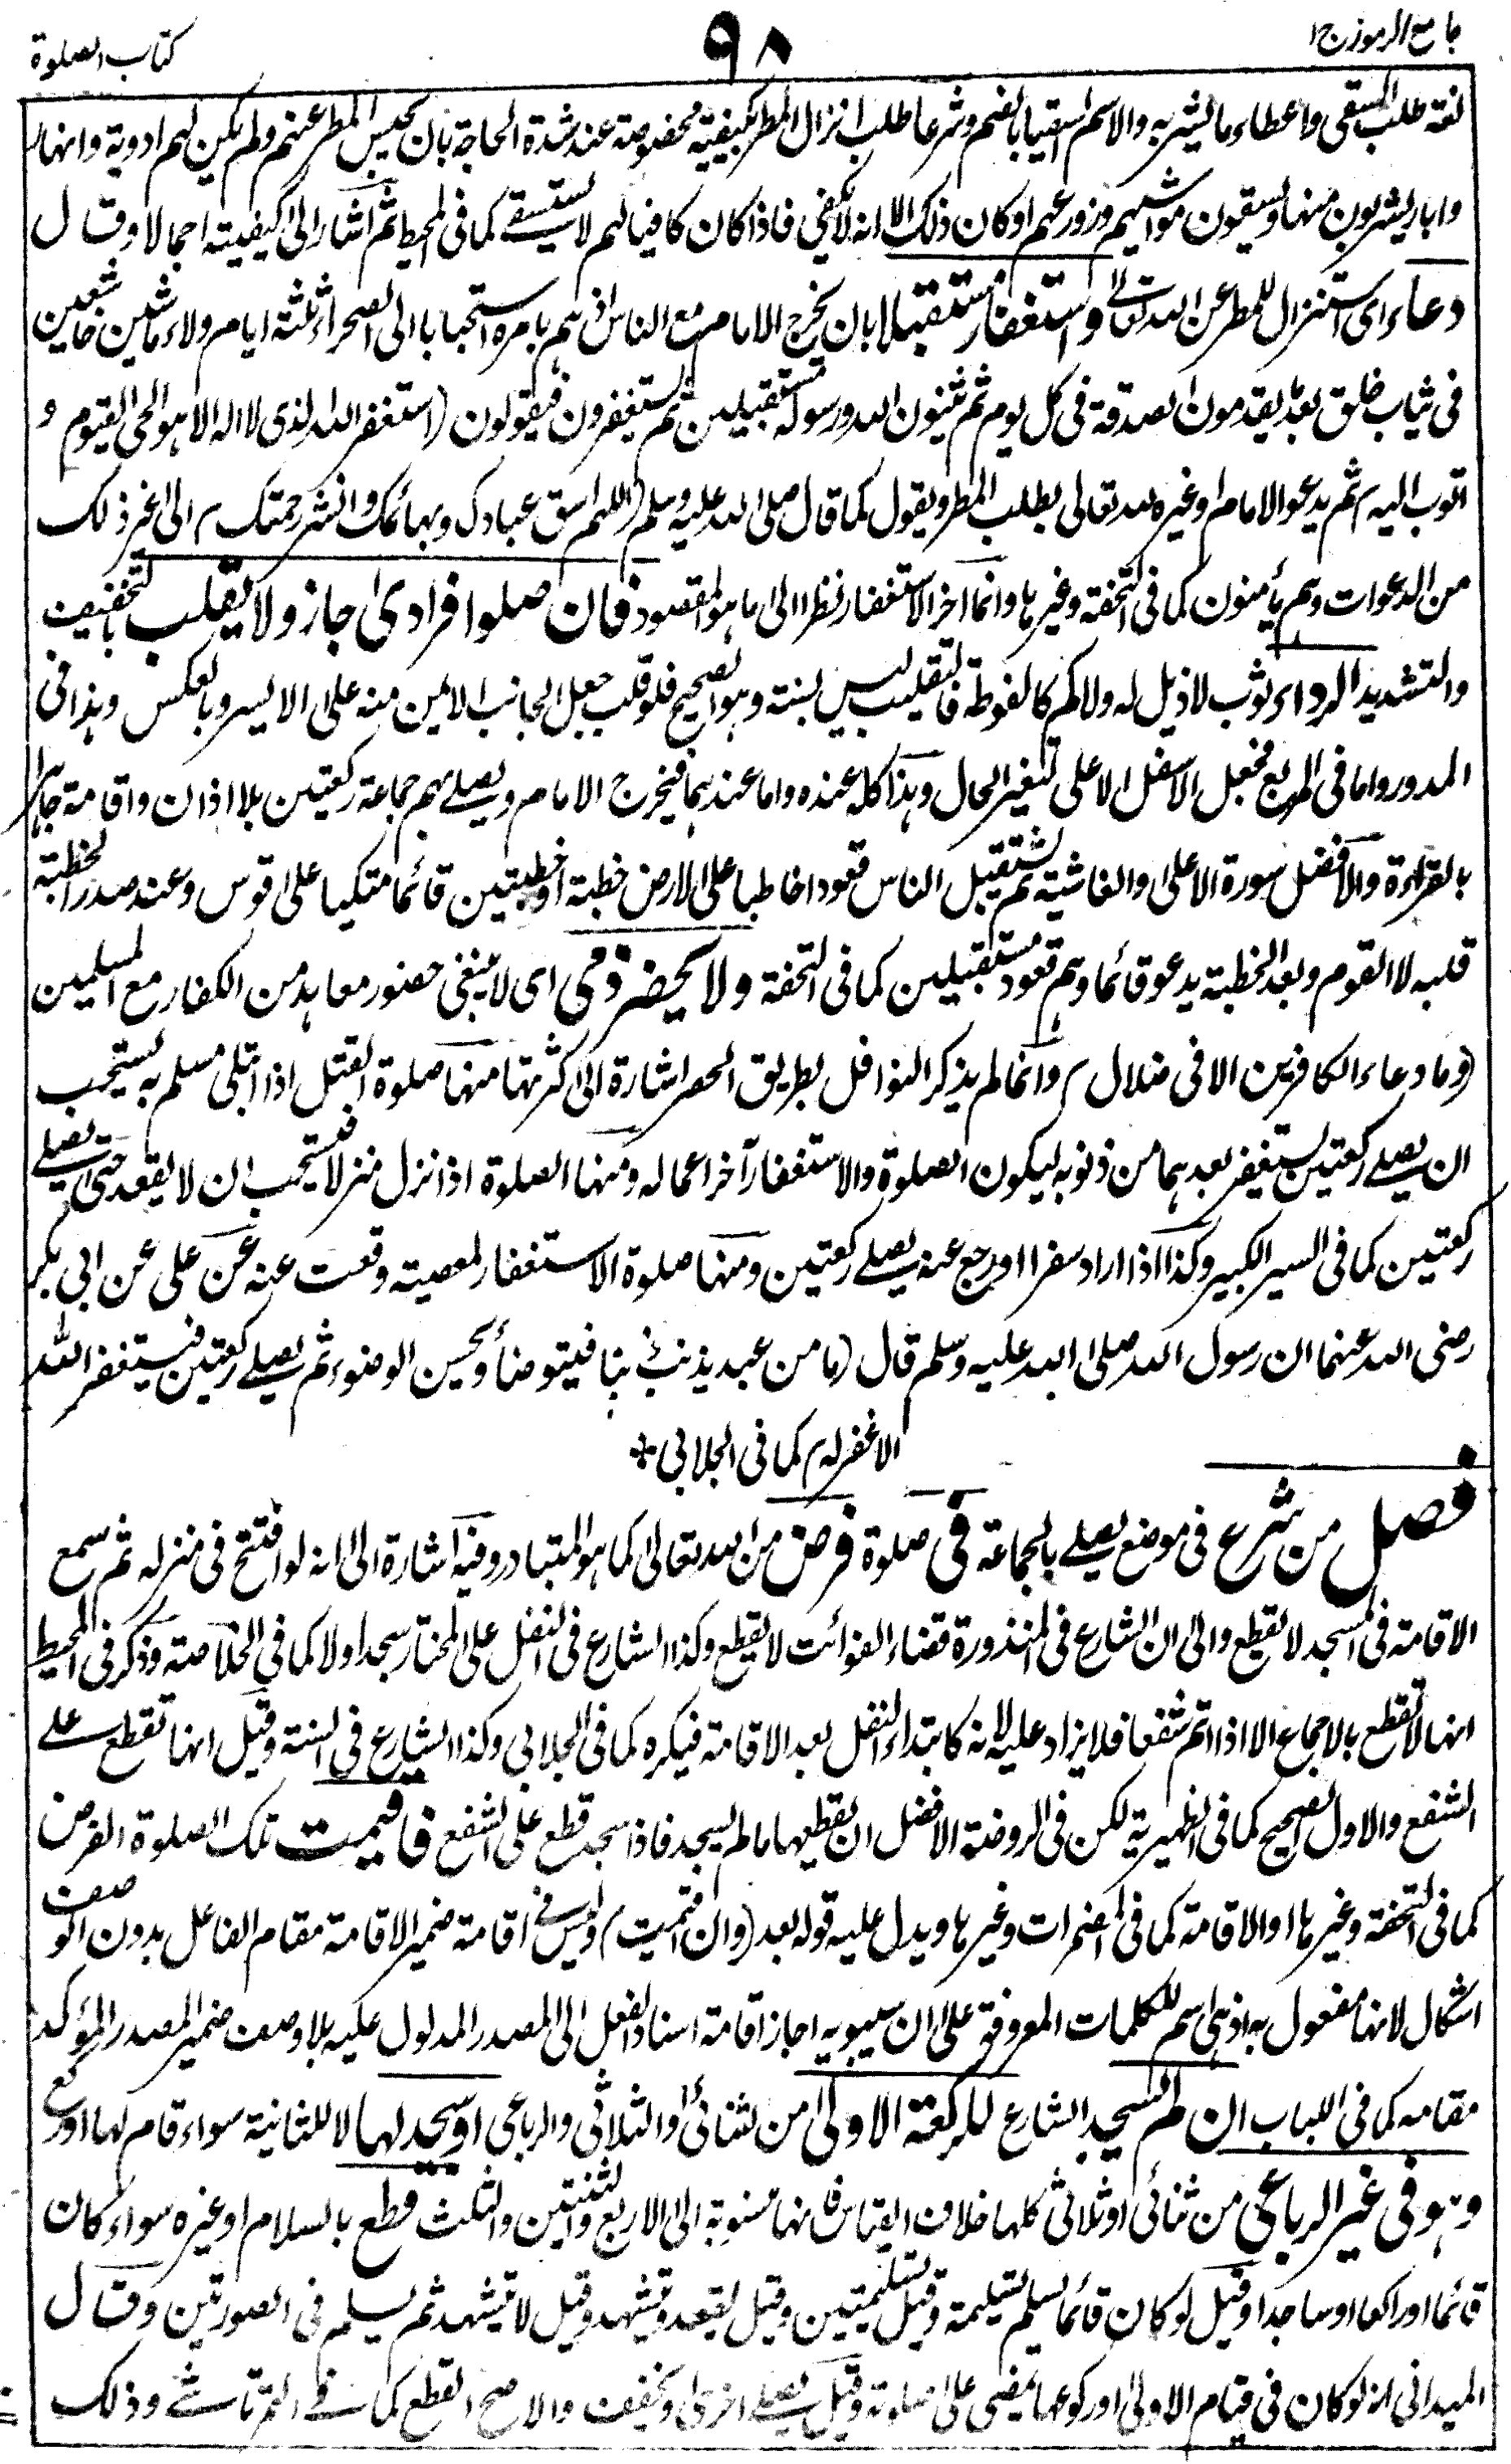 جامع الرموز ج١
٩٨
كتاب الصلوة
لغة طلب السقى واعطاء ما يشربه والاسم السقيا بالضم وشرعا طلب انزال المطر بكيفية مخصوصة عند شدة الحاجة بان يحبس المطر عنهم ولم يكن لهم اودية وانهار
وابار يشربون منها ويسقون مواشيهم وزروعهم او كان ذلك الا انه لا يكفى فاذا كان كافيا لهم لا يستسقے كما فى المحيط ثم اشار الى كيفيته اجمالا وقال
دعاء اى استنزال للمطر عن الله تعالے واستغفار مستقبلا بان يخرج الامام مع الناس او هم بامره استحبابا الى الصحراء ثلثة ايام ولاء ماشين خاشعين
فى ثياب خلق بعد يقدمون الصدقة فى كل يوم ثم يثنون الله ورسوله مستقبلين ثم يستغفرون فيقولون (استغفر الله الذى لا اله الا هو الحى القيوم و
اتوب اليه) ثم يدعو الامام او غيره لله تعالى بطلب المطر ويقول كما قال صلى الله عليه وسلم (اللهم اسق عبادك وبهائمك وانشر رحمتك) الى غير ذلك
من الدعوات وهم يأمنون كما فى التحفة وغيرها وانما اخر الاستغفار نظرا الى ما هو المقصود فان صلوا فرادى جاز ولا يقلب بالتخفيف
والتشديد الرداء اى ثوب لا ذيل له ولا كم كالفوطة فالتقليب ليس بسنة وهو الصحيح فلو قلب جعل الجانب الايمن منه على الايسر وبالعكس وهذا فى
المدور واما فى المربع فيجعل الاسفل الاعلى لتغير الحال وهذا كله عنده واما عندهما فيخرج الامام ويصلے بهم جماعة ركعتين بلا اذان واقامة جاهرا
بالقراءة والافضل سورة الاعلى والغاشية ثم يستقبل الناس قعودا خاطبا على الارض خطبة او خطبتين قائما متكيا على قوس وعند صدر الخطبة
قلبه لا القوم وبعد الخطبة يدعو قائما وهم قعود مستقبلين كما فى التحفة ولا يحضر ذمى اى لا ينبغى حضور معاهد من الكفار مع المسلمين
(وما دعاء الكافرين الا فى ضلال) وانما لم يذكر النوافل بطريق الحصر اشارة الى كثرتها منها صلوة القتل اذا ابتلى مسلم به يستحب
ان يصلے ركعتين يستغفر بعدهما من ذنوبه ليكون الصلوة والاستغفار آخر اعماله ومنها الصلوة اذا نزل منزلا فيستحب ان لا يقعد حتى يصلے
ركعتين كما فى السير الكبير وكذا اذا اراد سفرا او رجع عنه يصلے ركعتين ومنها صلوة الاستغفار لمعصية وقعت عنه عن على عن ابى بكر
رضى الله عنهما ان رسول الله صلى الله عليه وسلم قال (ما من عبد يذنب ذنبا فيتوضأ ويحسن الوضوء ثم يصلے ركعتين فيستغفر الله
الا غفر له) كما فى الجلابى *
فصل من شرع فى موضع يصلے بالجماعة فى صلوة فرض من الله تعالى كما هو المتبادر وفيه اشارة الى انه لو افتتح فى منزله ثم سمع
الاقامة فى المسجد لا يقطع والى ان الشارع فى المنذورة قضاء الفوائت لا يقطع وكذا الشارع فى النفل على المختار سجد اولا كما فى الخلاصة وذكر فى المحيط
انها لا تقطع بالاجماع الا اذا اتم شفعا فلا يزاد عليه لانه كابتداء النفل بعد الاقامة فيكره كما فى الجلابى وكذا الشارع فى السنة وقيل انها تقطع على
الشفع والاول الصحيح كما فى الظهيرية لكن فى الروضة الافضل ان يقطعها ما لم يسجد فاذا سجد قطع على الشفع فاقيمت تلك الصلوة الفرض
كما فى التحفة وغيرها او الاقامة كما فى المضمرات وغيرها ويدل عليه قوله بعد (وان اقيمت) وليس فى اقامة ضمير الاقامة مقام الفاعل بدون الوصف
اشكال لانها مفعول به اذ هى اسم للكلمات المعروفة على ان سيبويه اجاز اقامة اسناد الفعل الى المصدر المدلول عليه بلا وصف ضمير المصدر المؤكد
مقامه كما فى اللباب ان لم يسجد الشارع للركعة الاولى من الثنائى او الثلاثى والرباعى او سجد لها لا للثانية سواء قام لها او ركع
وهو فى غير الرباعى من ثنائى او ثلاثى كلها خلاف القياس فانها منسوبة الى الاربع والثنتين والثلث قطع بالسلام او غيره سواء كان
قائما او راكعا او ساجدا وقيل لو كان قائما يسلم بتسليمة وقيل بتسليمتين وقيل يقعد ويتشهد وقيل لا يتشهد ثم يسلم فى الصورتين وقال
الميدانى انه لو كان فى قيام الاولى او ركوعها يمضى على صلوته وقيل يصلے اخرى او يخفف والاصح القطع كما فى التمرتاشے وذلك